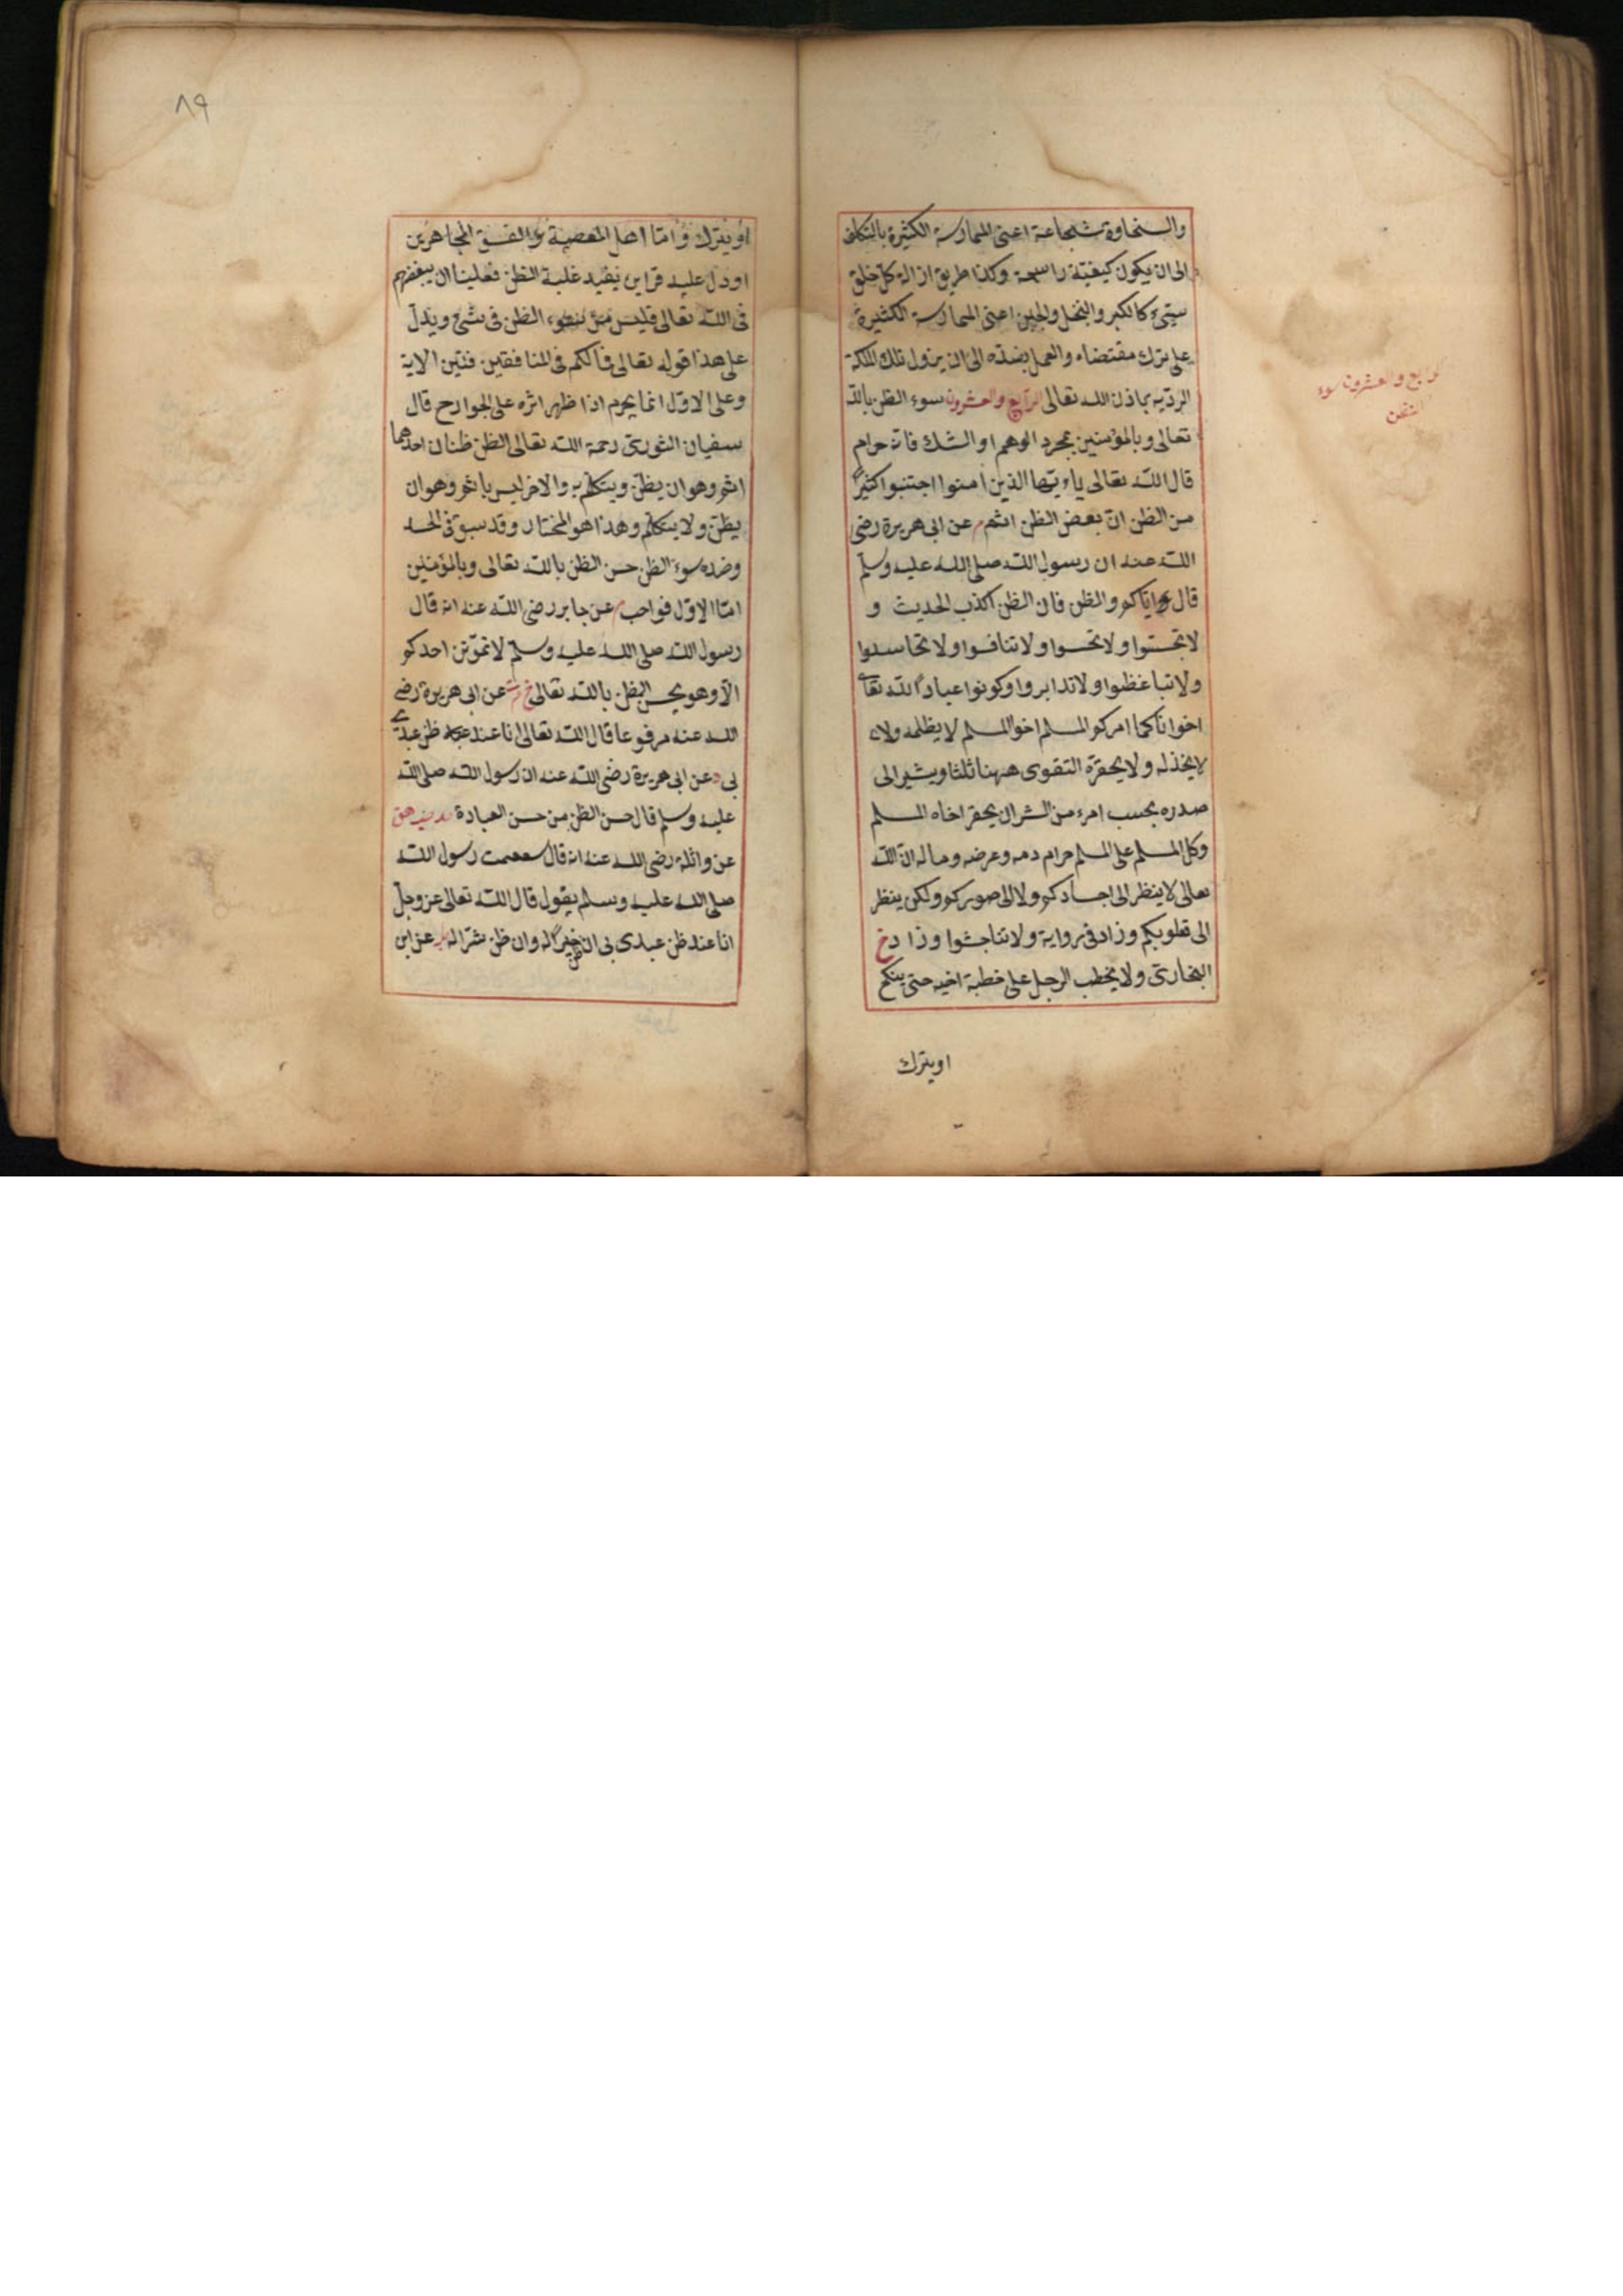 والسخاوة شجاعة اعنى الممارسة الكثيرة بالتكلف
الى ان يكون كيفية راسخة وكذا طريق ازالة كل خلق
سيئ كالكبر والبخل والجبن اعنى الممارسة الكثيرة
على ترك مقتضاه والعمل بضده الى ان يزول تلك الملكة
الردية باذن الله تعالى الرابع والعشرون سوء الظن بالله
تعالى وبالمؤمنين بمجرد الوهم او الشك فانه حرام
قال الله تعالى ياءيها الذين امنوا اجتنبوا كثيرا
من الظن ان بعض الظن اثم م عن ابى هريرة رضى
الله عنه ان رسول الله صلى الله عليه وسلم
قال اياكم والظن فان الظن اكذب الحديث و
لا تجسسوا ولا تحسسوا ولا تنافسوا ولا تحاسدوا
ولا تباغظوا ولا تدابروا وكونوا عباد الله تعالى
اخوانا كما امركم المسلم اخو المسلم لا يظلمه ولا
لا يخذله ولا يحقره التقوى ههنا ثلثا ويشير الى
صدره بحسب امرء من الشر ان يحقر اخاه المسلم
وكل المسلم على المسلم حرام دمه وعرضه وماله ان الله
تعالى لا ينظر الى اجسادكم ولا الى صوركم ولكن ينظر
الى قلوبكم وزاد فى رواية ولا تناجشوا وزاد خ
البخارى ولا يخطب الرجل على خطبة اخيه حتى ينكح
او يترك
الرابع والعشرون سوء
الظن
٨٩
او يترك واما اهل المعصية والفسق المجاهرين
او دل عليه قراين يفيد غلبة الظن فعلينا ان يبغضهم
فى الله تعالى فليس من سوء الظن فى شئ ويدل
على هذا قوله تعالى فما لكم فى المنافقين فئتين الاية
وعلى الاول انما يحرم اذا ظهر اثره على الجوارح قال
سفيان الثورى رحمة الله تعالى الظن ظنان احدهما
اثم وهو ان يظن ويتكلم به والاخر ليس باثم وهو ان
يظن ولا يتكلم وهذا هو المختار وقد سبق فى الحسد
وضد سوء الظن حسن الظن بالله تعالى وبالمؤمنين
اما الاول فواجب م عن جابر رضى الله عنه انه قال
رسول الله صلى الله عليه وسلم لا تموتن احدكم
الا وهو يحسن الظن بالله تعالى خ م عن ابى هريرة رضى
الله عنه مرفوعا قال الله تعالى انا عند ظن عبدى
بى د عن ابى هريرة رضى الله عنه ان رسول الله صلى الله
عليه وسلم قال حسن الظن من حسن العبادة حد هق
عن واثلة رضى الله عنه انه قال سمعت رسول الله
صلى الله عليه وسلم يقول قال الله تعالى عز وجل
انا عند ظن عبدى بى ان ظن خيرا له وان ظن شرا له عن ابن